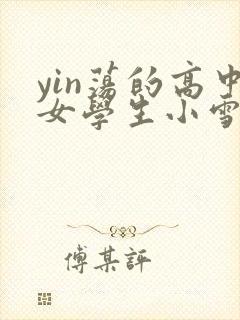 yin蕩的高中
女學生小雪
傅某評